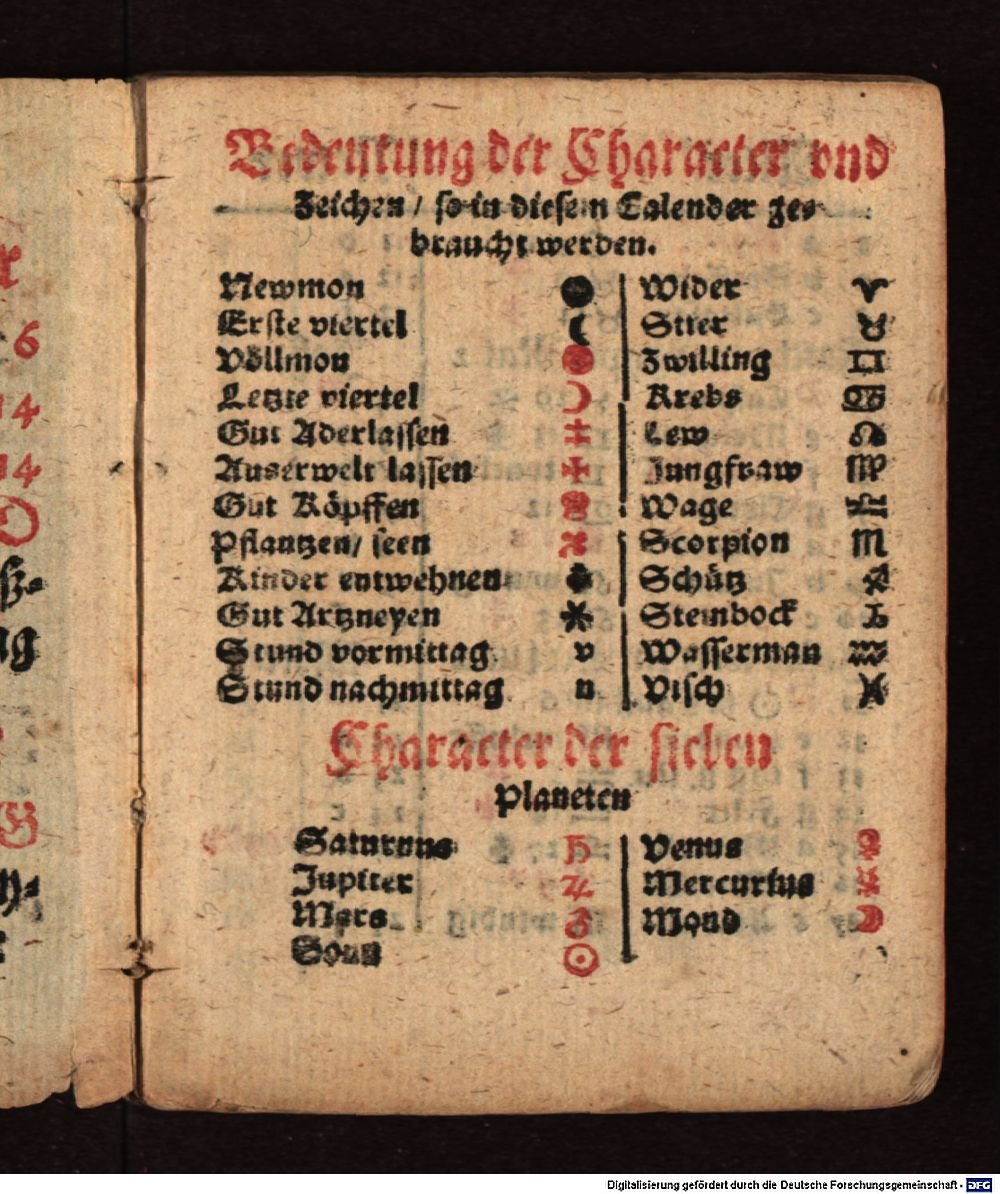 Bedeutung der Character vnd
Zeichen / so in diesem Calender ge⸗
braucht werden.
Newmon ●
Erste viertel ☾
Völlmon
Letzte viertel ☽
Gut Aderlassen
Auserwelt lassen
Gut Köpffen
Pflantzen/ seen
Kinder entwehnen
Gut Artzneyen *
Stund vormittag v
Stund nachmittag n
Wider ♈
Stier ♉
Zwilling ♊
Krebs ♋
Lew ♌
Jungfraw ♍
Wage ♎
Scorpion ♏
Schütz ♐
Steinbock ♑
Wasserman ♒
Visch ♓
Character der sieben
Planeten
Saturnus ♄
Jupiter ♃
Mars ♂
Sonn ☉
Venus ♀
Mercurius ☿
Mond ☾
6
14
14
Digitalisierung gefördert durch die Deutsche Forschungsgemeinschaft - DFG